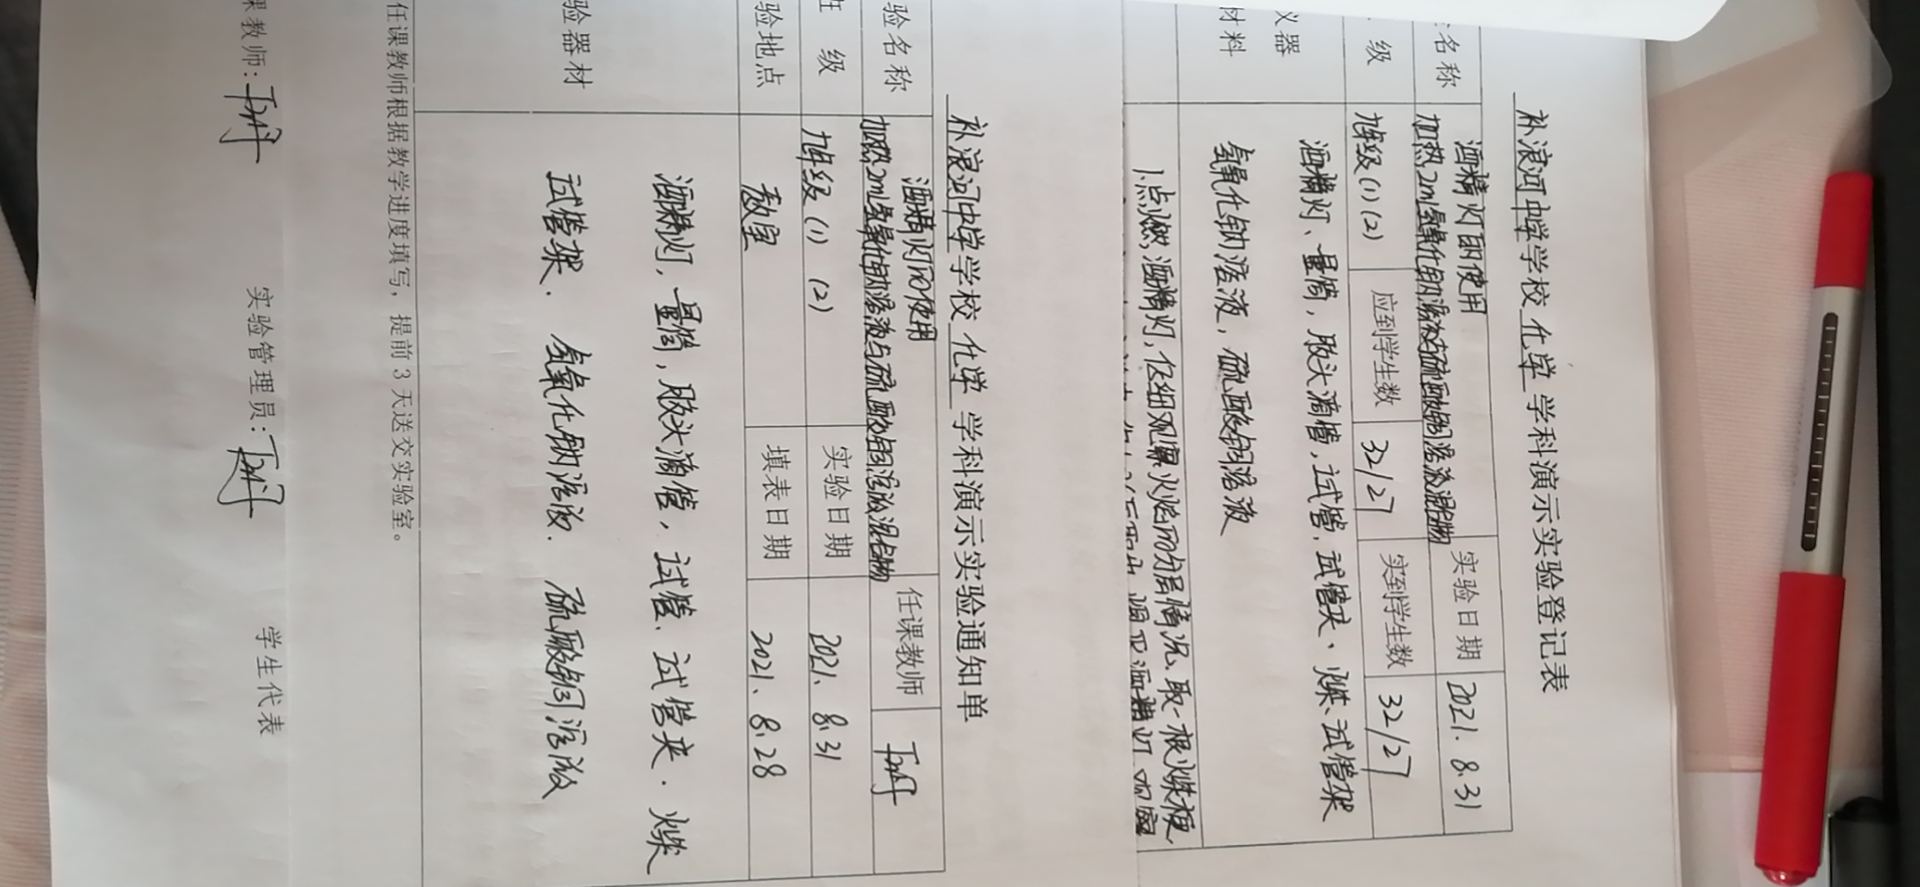 补浪河中学学校 化学 学科演示实验登记表
名称 酒精灯的使用 实验日期 2021.8.31
加热2ml氢氧化钠溶液与硫酸铜溶液混合物
级 九年级(1)(2) 应到学生数 32/27 实到学生数 32/27
仪器 酒精灯、量筒,胶头滴管,试管,试管夹、火柴、试管架
材料 氢氧化钠溶液,硫酸铜溶液
1.点燃酒精灯,仔细观察火焰的分层情况.取一根火柴梗,
补浪河中学学校 化学 学科演示实验通知单
验名称 酒精灯的使用 任课教师
加热2ml氢氧化钠溶液与硫酸铜溶液混合物
级 九年级(1)(2) 实验日期 2021.8.31
验地点 教室 填表日期 2021.8.28
验器材 酒精灯,量筒,胶头滴管,试管、试管夹.火柴
试管架.氢氧化钠溶液.硫酸铜溶液
任课教师根据教学进度填写,提前3天送交实验室。
课教师: 实验管理员: 学生代表